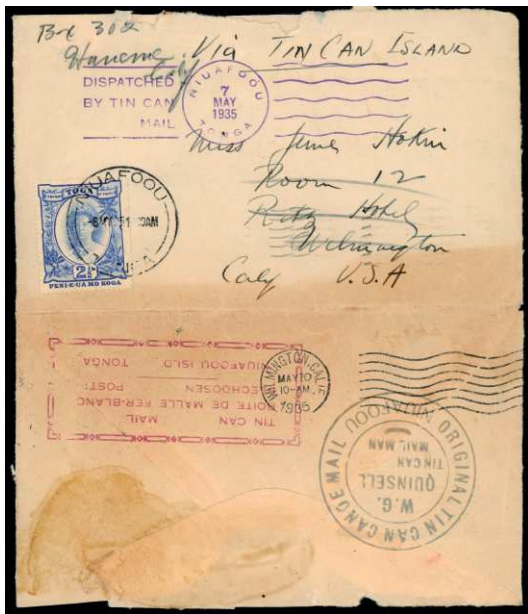 Box 302
Via TIN CAN ISLAND
DISPATCHED
BY TIN CAN
MAIL
NIUAFOOU
7
MAY
1935
TONGA
Miss
Room 12
Ritz Hotel
Wilmington
Caly U.S.A
NIUAFOOU
TOGA
2½
PENI-E-UA MO KOGA
TIN CAN
MAIL
BOITE DE MALLE FER-BLANC
BLECHDOSEN
POST:
NIUAFOOU ISLD
TONGA
WILMINGTON, CALIF.
MAY 20
10-AM
1935
ORIGINAL TIN CAN CANOE MAIL NIUAFOOU
W.G.
QUINSELL
TIN CAN
MAIL MAN